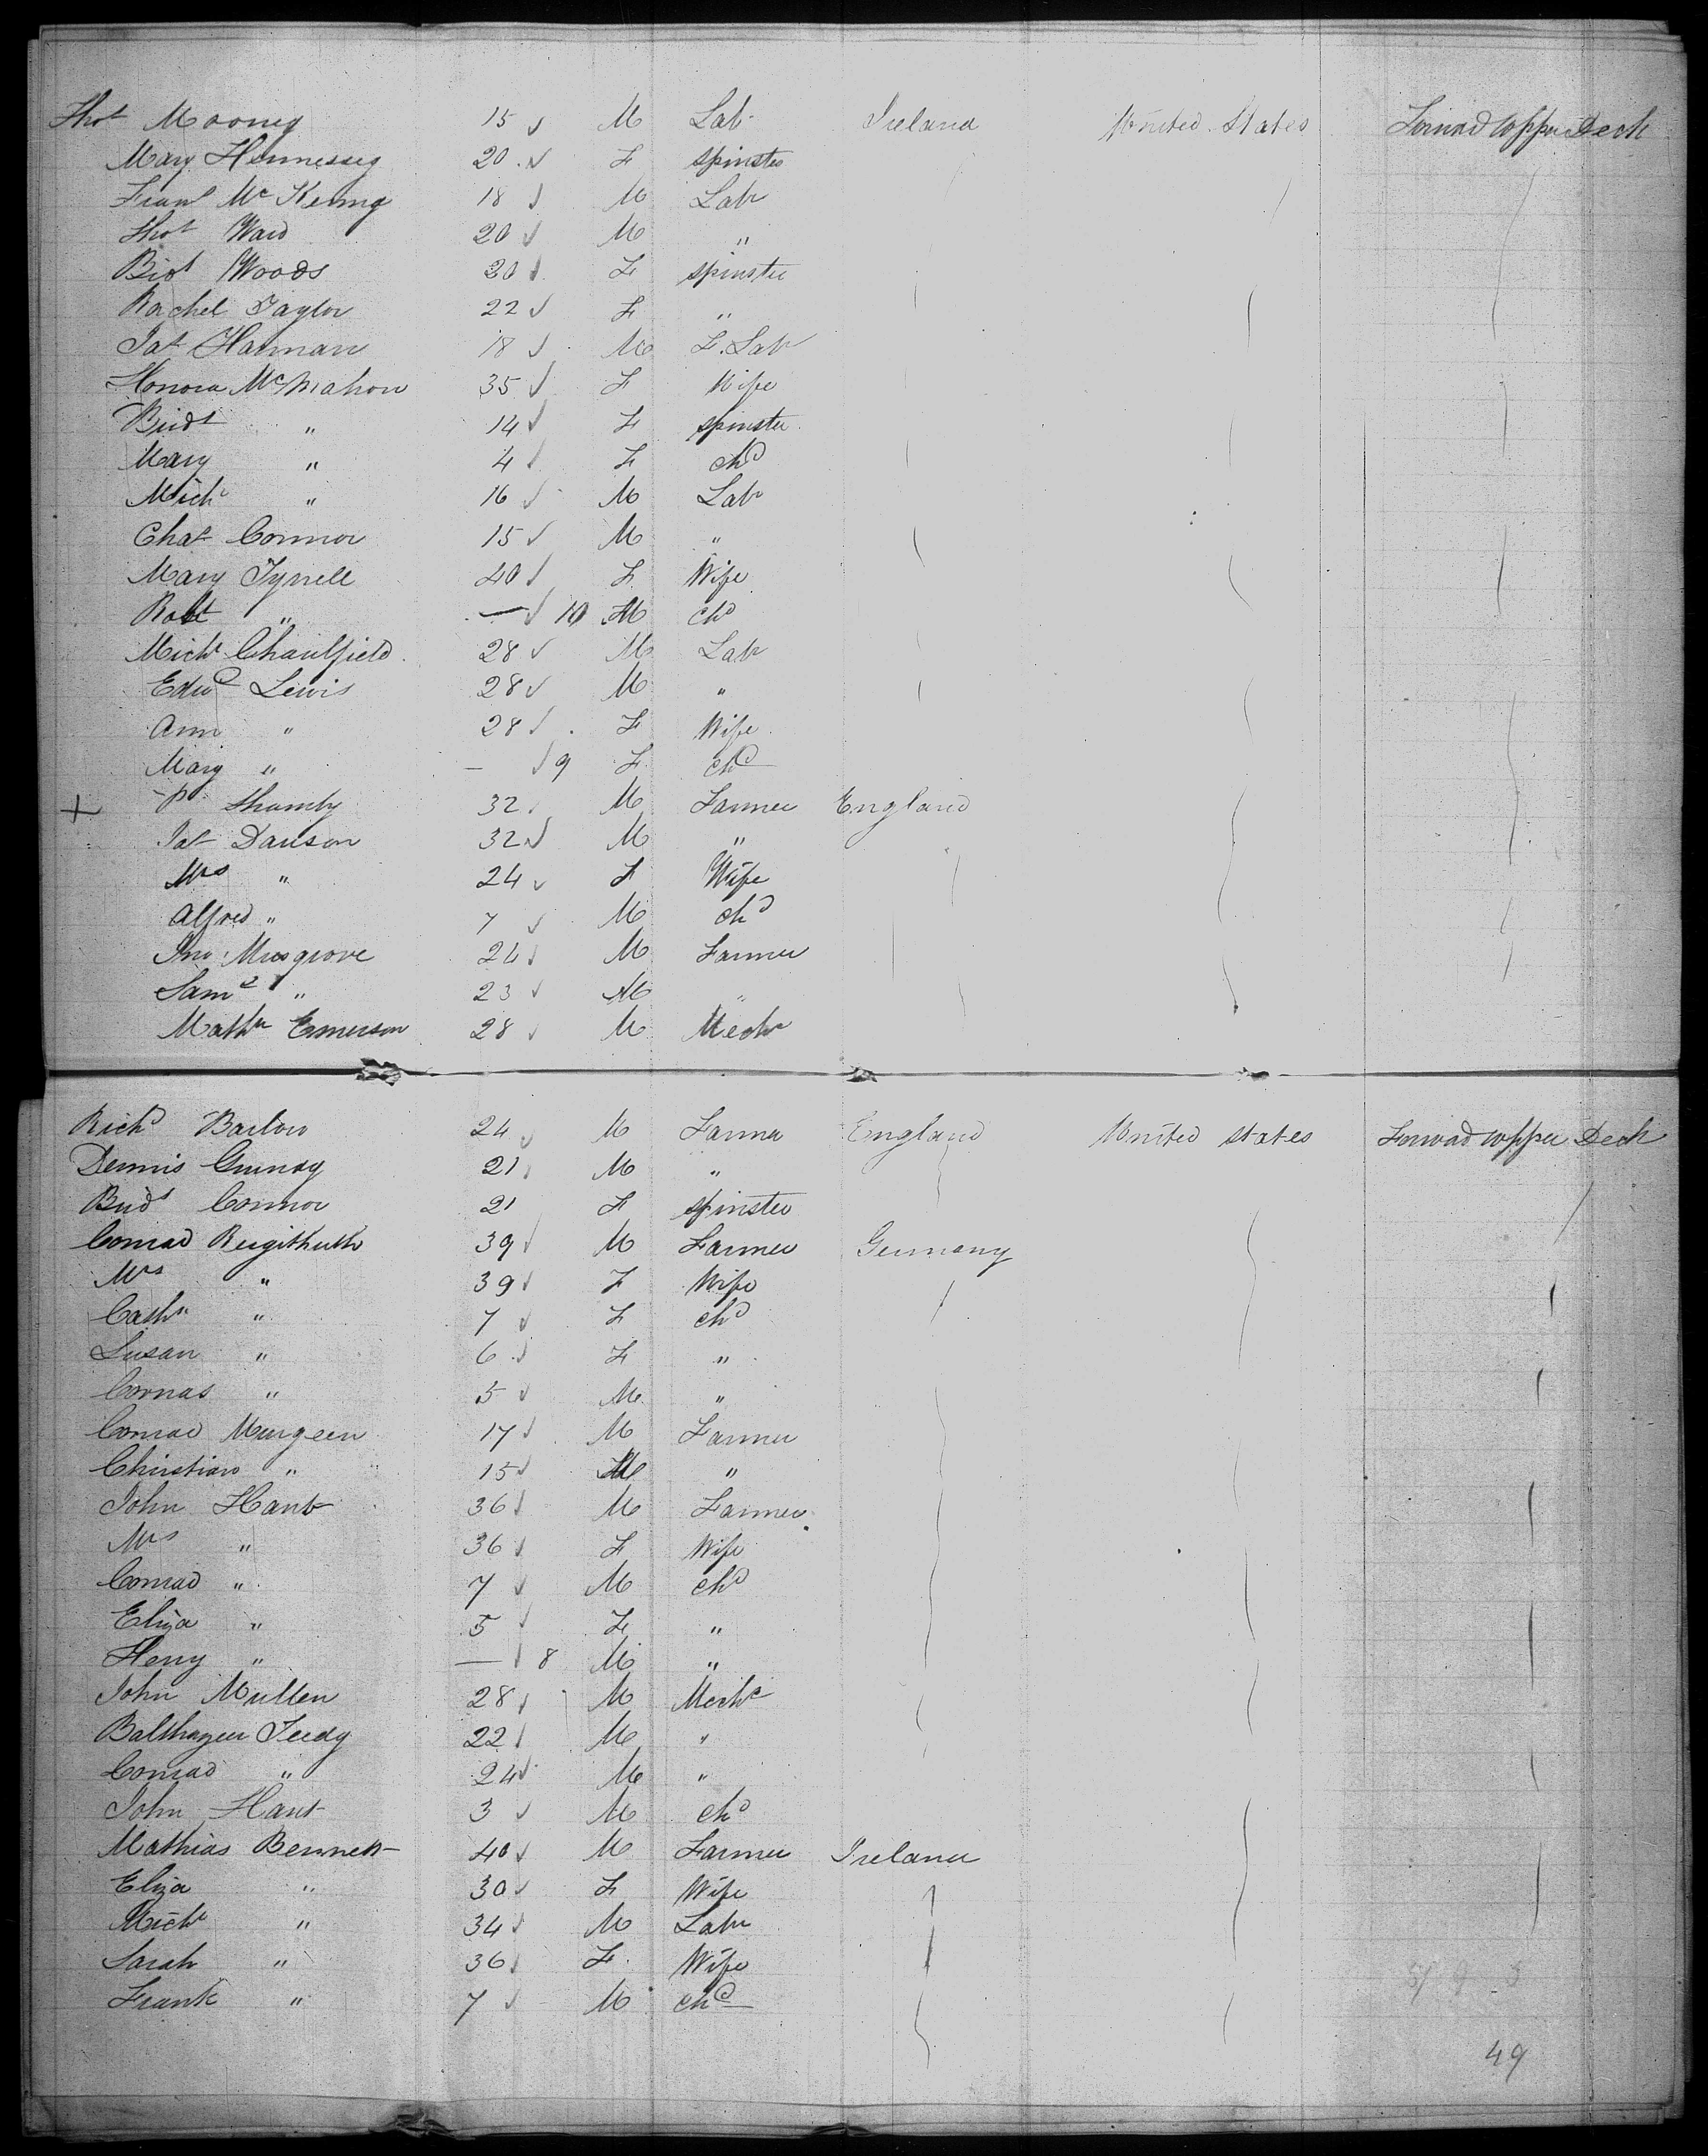 Thos Mooney 15 M Lab Ireland United States Forward Upper Deck
Mary Hennessey 20 F Spinster
Frans McKenny 18 M Lab
Thos Ward 20 M "
Bidt Woods 20 F Spinster
Rachel Taylor 22 F "
Pat Hannan 18 M F. Lab
Honora McMahon 35 F Wife
Bridt " 14 F Spinster
Mary " 4 F chd
Michl " 16 M Lab
Chas Connor 15 M "
Mary Tyrrell 40 F Wife
Robt " — 10 M chd
Michl Chaulfield 28 M Lab
Edwd Lewis 28 M "
Ann " 28 F Wife
Mary " — 9 F chd
+ P. 32 M Farmer England
Jas Dawson 32 M "
Mrs " 24 F Wife
Alfred " 7 M chd
Jno Musgrove 24 M Farmer
Saml " 23 M "
Mathw Emerson 28 M Mech
Richd Barlow 24 M Farmer England United States Forward Upper Deck
Dennis 21 M "
Brids Connor 21 F Spinster
Conrad 39 M Farmer Germany
Mrs " 39 F Wife
Cathn " 7 F chd
Susan " 6 F "
Cornas " 5 M "
Conrad Murgeen 17 M Farmer
Christian " 15 M "
John Hant 36 M Farmer
Mrs " 36 F Wife
Conrad " 7 M chd
Eliza " 5 F "
Henry " — 8 M "
John Mullen 28 M Mechc
Balthazer 22 M "
Conrad " 24 M "
John Hant 3 M chd
Mathias Bennett 40 M Farmer Ireland
Eliza " 30 F Wife
Michl " 34 M Labr
Sarah " 36 F Wife
Frank " 7 M chd
49